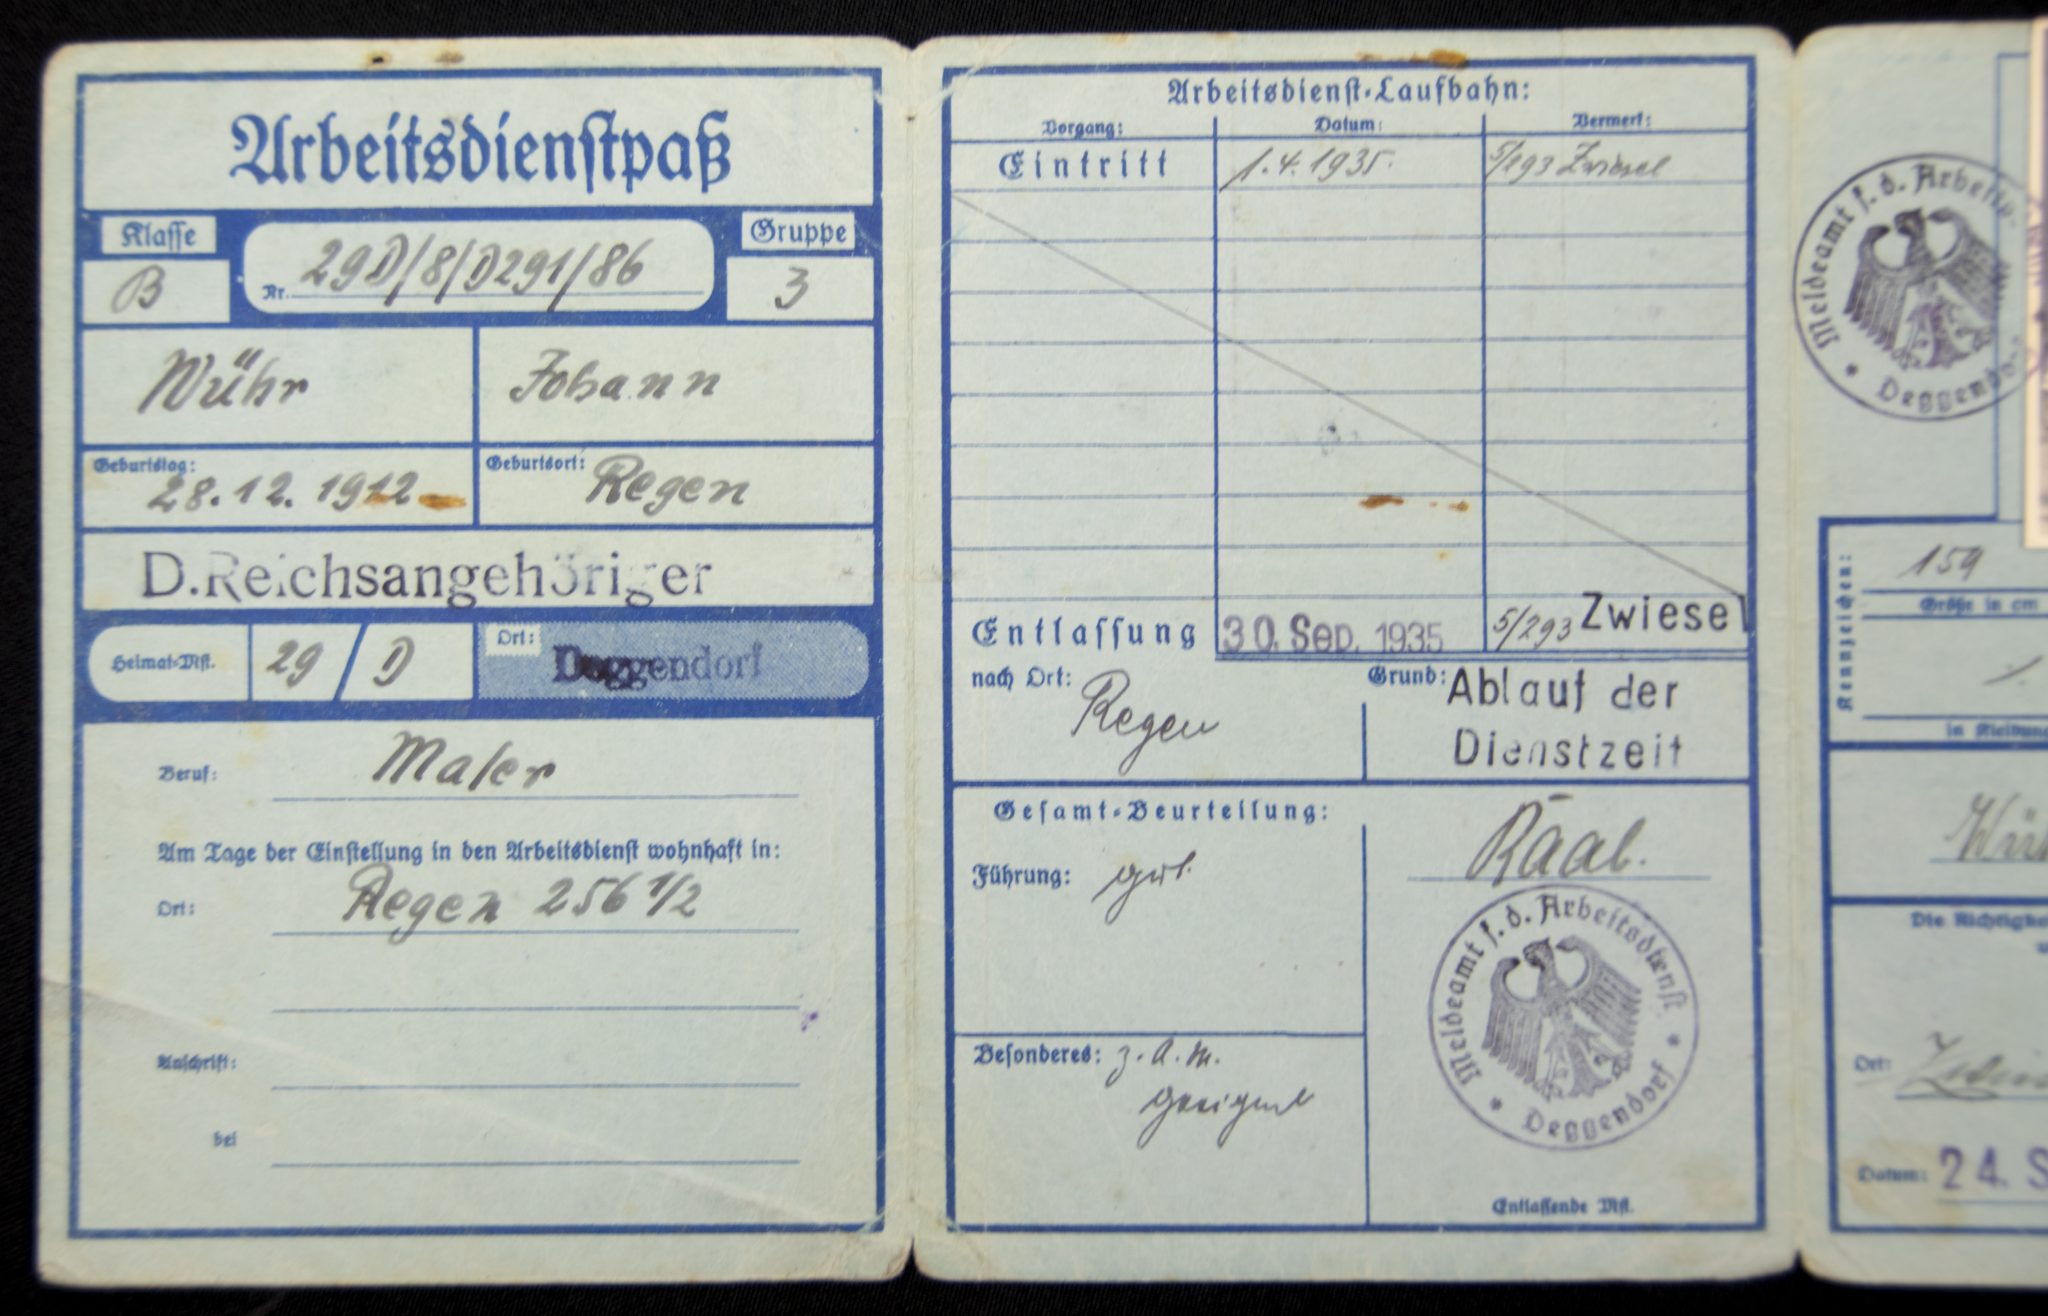 Arbeitsdienstpaß
Klasse
Gruppe
B
Nr. 29D/8/D291/86
3
Wühr
Johann
Geburtstag:
28.12.1912
Geburtsort:
Regen
D.Reichsangehöriger
Heimat-Mst.
29 / D
Ort:
Deggendorf
Beruf: Maler
Am Tage der Einstellung in den Arbeitsdienst wohnhaft in:
Ort: Regen 256 1/2
Anschrift:
bei
Arbeitsdienst-Laufbahn:
Vorgang: Datum: Vermerk:
Eintritt 1.4.1935. 5/293 Zwiesel
Entlassung 30. Sep. 1935 5/293 Zwiesel
nach Ort:
Regen
Grund: Ablauf der
Dienstzeit
Gesamt-Beurteilung:
Führung: gut.
Raab.
Meldeamt f. d. Arbeitsdienst
* Deggendorf *
Besonderes: z. A. M.
geeignet
Entlassende Mst.
Meldeamt f. d. Arbeits
* Deggendo
Kennzeichen:
159
Größe in cm
Die Richtigke
Ort:
Datum: 24. S